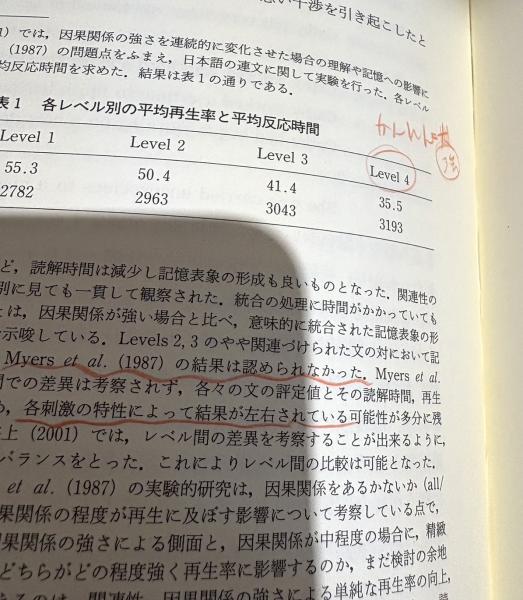 い干渉を引き起こしたと
では，因果関係の強さを連続的に変化させた場合の理解や記憶への影響に
(1987) の問題点をふまえ，日本語の連文に関して実験を行った．各レベル
均反応時間を求めた．結果は表1の通りである．
表1 各レベル別の平均再生率と平均反応時間
Level 1 Level 2 Level 3 Level 4
55.3 50.4 41.4 35.5
2782 2963 3043 3193
ど，読解時間は減少し記憶表象の形成も良いものとなった．関連性の
別に見ても一貫して観察された．統合の処理に時間がかかっていても
は，因果関係が強い場合と比べ，意味的に統合された記憶表象の形
示唆している．Levels 2, 3 のやや関連づけられた文の対において記
Myers et al. (1987) の結果は認められなかった．Myers et al.
間での差異は考察されず，各々の文の評定値とその読解時間，再生
，各刺激の特性によって結果が左右されている可能性が多分に残
上 (2001) では，レベル間の差異を考察することが出来るように，
バランスをとった．これによりレベル間の比較は可能となった．
et al. (1987) の実験的研究は，因果関係をあるかないか (all/
果関係の程度が再生に及ぼす影響について考察している点で，
因果関係の強さによる側面と，因果関係が中程度の場合に，精緻
どちらがどの程度強く再生率に影響するのか，まだ検討の余地
あるのは，関連性，因果関係の強さによる単純な再生率の向上，